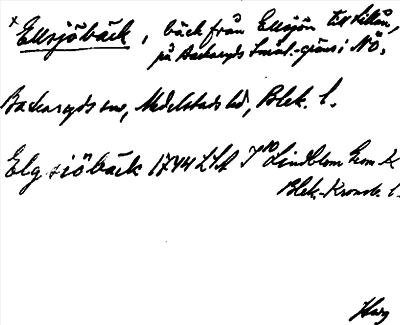 x Ellsjöbäck, bäck från Ellsjön till
på Backaryds Smål.-gräns i NÖ.
Backaryds sn, Medelstads hd, Blek. l.
Elgsiöbäck 1744 LSA Lindblom
Blek.-Kronob. l.